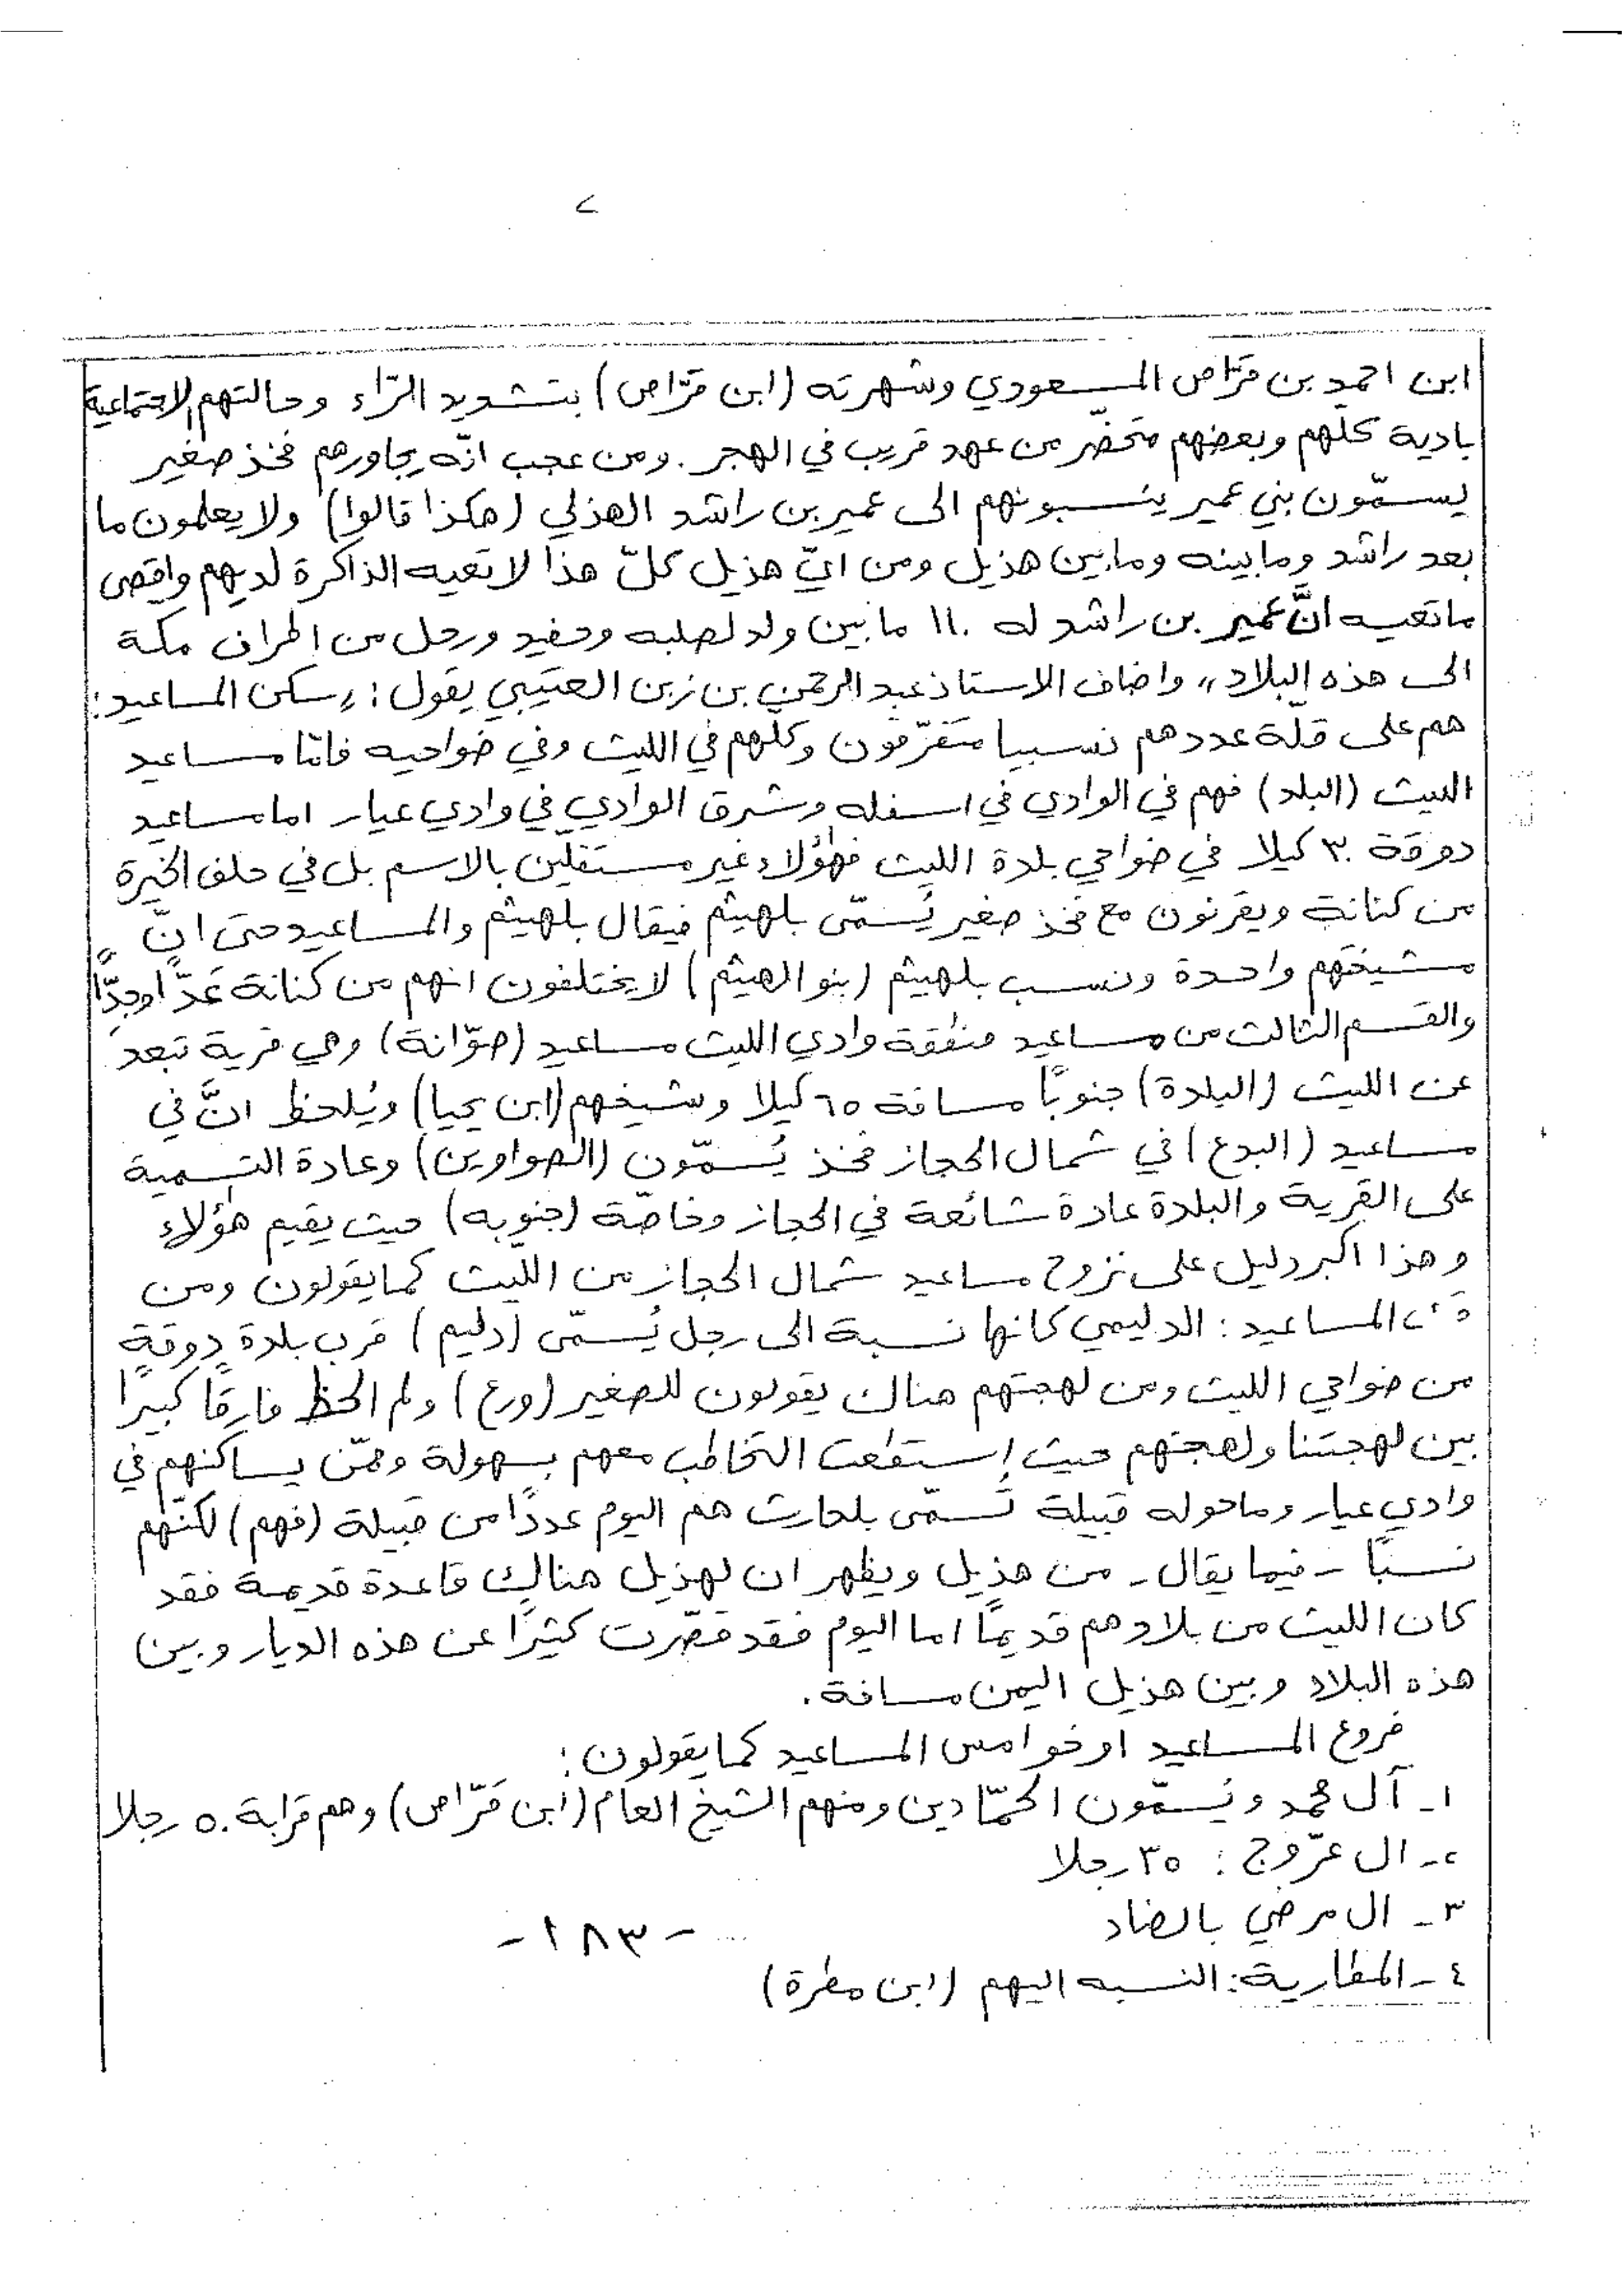 ابن احمد بن قرّاص المسعودي وشهرته (ابن قرّاص) بتشديد الرّاء وحالتهم الاجتماعية
بادية كلّهم وبعضهم متحضّر من عهد قريب في الهجر. ومن عجب انّه يجاورهم فخذ صغير
يسمّون بني عمير ينسبونهم الى عمير بن راشد الهذلي (هكذا قالوا) ولا يعلمون ما
بعد راشد وما بينه وما بين هذيل ومن ايّ هذيل كلّ هذا لا تعيه الذاكرة لديهم واقصى
ما تعيه انَّ عمير بن راشد له ١١٠ ما بين ولد لصلبه وحفيد ورحل من اطراف مكة
الى هذه البلاد،، واضاف الاستاذ عبد الرحمن بن زبن العتيبي يقول: سكن المساعيد:
هم على قلّة عددهم نسبيا متفرّقون وكلهم في الليث وفي ضواحيه فامّا مساعيد
الليث (البلد) فهم في الوادي في اسفله وشرق الوادي في وادي عيار اما مساعيد
دوقة ٣٠ كيلا في ضواحي بلدة الليث فهؤلاء غير مستقلّين بالاسم بل في حلف الخيرة
من كنانة ويقرنون مع فخذ صغير يُسمّى بلهيثم فيقال بلهيثم والمساعيد حتى انّ
مشيختهم واحدة ونسب بلهيثم (بنو الهيثم) لا يختلفون انهم من كنانة عَدًّا وجدًّا
والقسم الثالث من مساعيد منطقة وادي الليث مساعيد (صوّانة) وهي قرية تبعد
عن الليث (البلدة) جنوبًا مسافة ٦٥ كيلا وشيخهم (ابن يحيا) ويُلحظ انَّ في
مساعيد (البدع) في شمال الحجاز فخذ يُسمّون (الصواوين) وعادة التسمية
على القرية والبلدة عادة شائعة في الحجاز وخاصّة (جنوبه) حيث يقيم هؤلاء
وهذا اكبر دليل على نزوح مساعيد شمال الحجاز من الليث كما يقولون ومن
المساعيد: الدليمي كانها نسبة الى رجل يُسمّى (دليم) قرب بلدة دوقة
من ضواحي الليث ومن لهجتهم هناك يقولون للصغير (ورع) ولم الحظ فارقًا كبيرًا
بين لهجتنا ولهجتهم حيث إستطعت التخاطب معهم بسهولة وممّن يساكنهم في
وادي عيار وما حوله قبيلة تُسمّى بلحارث هم اليوم عددًا من قبيلة (فهم) لكنّهم
نسبًا - فيما يقال - من هذيل ويظهر ان لهذيل هناك قاعدة قديمة فقد
كان الليث من بلادهم قديمًا اما اليوم فقد قصّرت كثيرًا عن هذه الديار وبين
هذه البلاد وبين هذيل اليمن مسافة.
فروع المساعيد او خوامس المساعيد كما يقولون:
١- آل محمد ويُسمّون الحمّادين ومنهم الشيخ العام (ابن قرّاص) وهم قرابة ٥٠ رجلا
٢- ال عرّوج: ٣٥ رجلا
٣- ال مرضي بالضاد
-١٨٣-
٤- المطارية: النسبه اليهم (ابن مطرة)